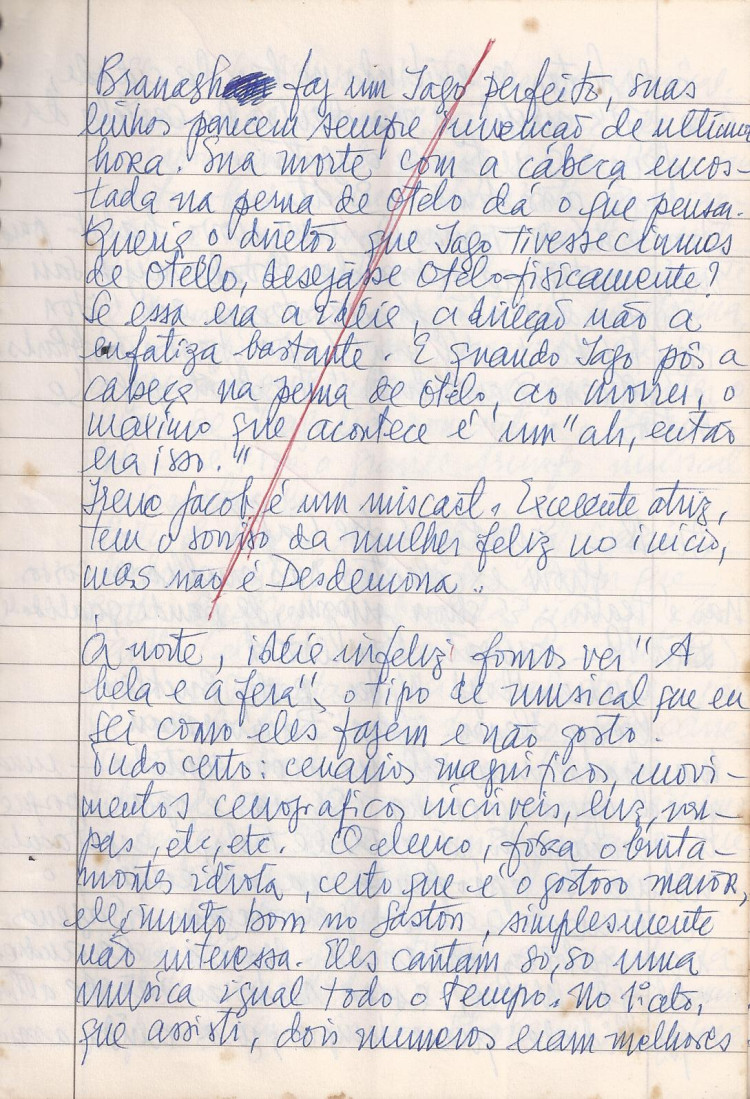 Branagh faz um Iago perfeito, suas
linhas parecem sempre invenção de ultima
hora. Sua morte com a cabeça encos-
tada na perna de Otelo dá o que pensar.
Queria o diretor que Iago tivesse ciumes
de Otello, desejasse Otelo fisicamente?
Se essa era a idéie, a direção não a
enfatiza bastante. E quando Iago pôs a
cabeça na perna de Otelo, ao morrer, o
maximo que acontece é um "ah, então
era isso."
Irene Jacob é um miscast. Excelente atriz,
tem o sorriso da mulher feliz no inicio,
mas não é Desdemona..
À noite, idéie infeliz fomos ver "A
bela e a fera", o tipo de musical que eu
sei como eles fazem e não gosto.
Tudo certo: cenarios magnificos, movi-
mentos cenograficos incriveis, luz, rou-
pas, etc, etc. O elenco, fora o bruta-
montes idiota, certo que é o gostoso maior,
ele é muito bom no Gaston, simplesmente
não interessa. Eles cantam só, só uma
musica igual todo o tempo. No 1º ato,
que assisti, dois numeros eram melhores